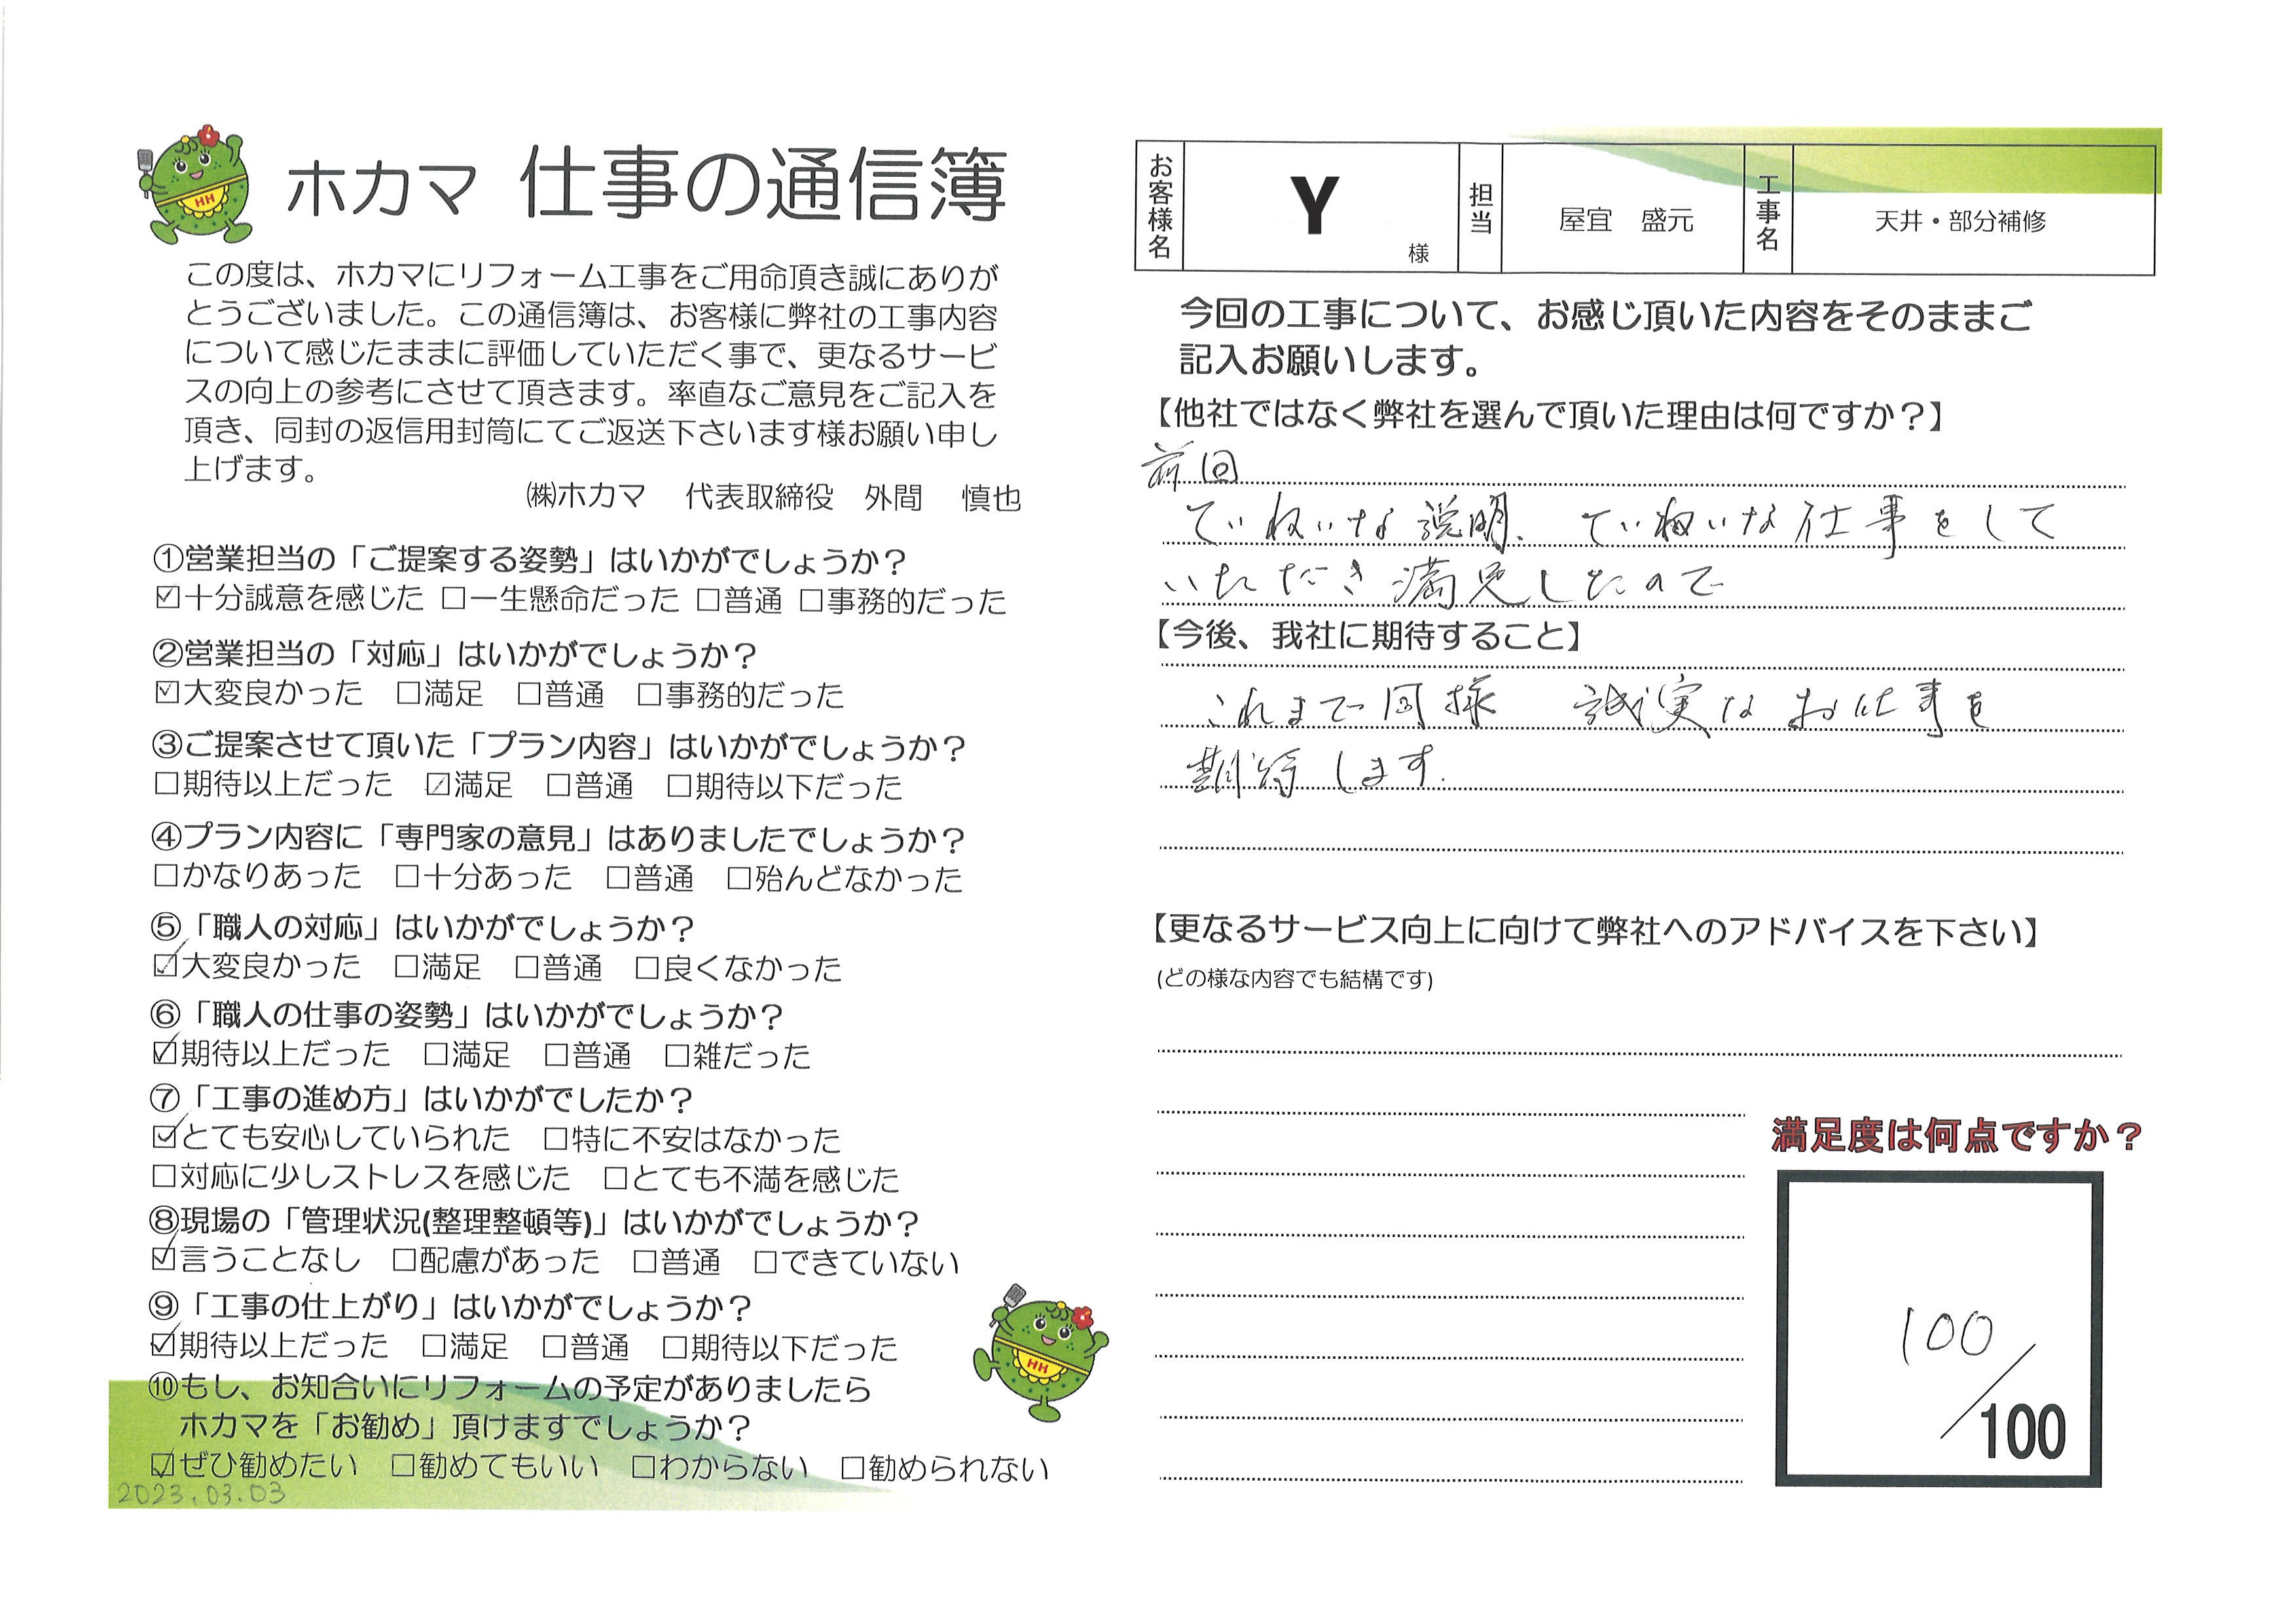 ホカマ 仕事の通信簿
この度は、ホカマにリフォーム工事をご用命頂き誠にありが
とうございました。この通信簿は、お客様に弊社の工事内容
について感じたままに評価していただく事で、更なるサービ
スの向上の参考にさせて頂きます。率直なご意見をご記入を
頂き、同封の返信用封筒にてご返送下さいます様お願い申し
上げます。
㈱ホカマ 代表取締役 外間 慎也
①営業担当の「ご提案する姿勢」はいかがでしょうか？
☑十分誠意を感じた □一生懸命だった □普通 □事務的だった
②営業担当の「対応」はいかがでしょうか？
☑大変良かった □満足 □普通 □事務的だった
③ご提案させて頂いた「プラン内容」はいかがでしょうか？
□期待以上だった ☑満足 □普通 □期待以下だった
④プラン内容に「専門家の意見」はありましたでしょうか？
□かなりあった □十分あった □普通 □殆んどなかった
⑤「職人の対応」はいかがでしょうか？
☑大変良かった □満足 □普通 □良くなかった
⑥「職人の仕事の姿勢」はいかがでしょうか？
☑期待以上だった □満足 □普通 □雑だった
⑦「工事の進め方」はいかがでしたか？
☑とても安心していられた □特に不安はなかった
□対応に少しストレスを感じた □とても不満を感じた
⑧現場の「管理状況(整理整頓等)」はいかがでしょうか？
☑言うことなし □配慮があった □普通 □できていない
⑨「工事の仕上がり」はいかがでしょうか？
☑期待以上だった □満足 □普通 □期待以下だった
⑩もし、お知合いにリフォームの予定がありましたら
ホカマを「お勧め」頂けますでしょうか？
☑ぜひ勧めたい □勧めてもいい □わからない □勧められない
2023.03.03
HH
HH
お客様名 Y 様 担当 屋宜 盛元 工事名 天井・部分補修
今回の工事について、お感じ頂いた内容をそのままご
記入お願いします。
【他社ではなく弊社を選んで頂いた理由は何ですか？】
前回
ていねいな説明、ていねいな仕事をして
いただき満足したので
【今後、我社に期待すること】
これまで同様 誠実なお仕事を
期待します.
【更なるサービス向上に向けて弊社へのアドバイスを下さい】
(どの様な内容でも結構です)
満足度は何点ですか？
100
/100